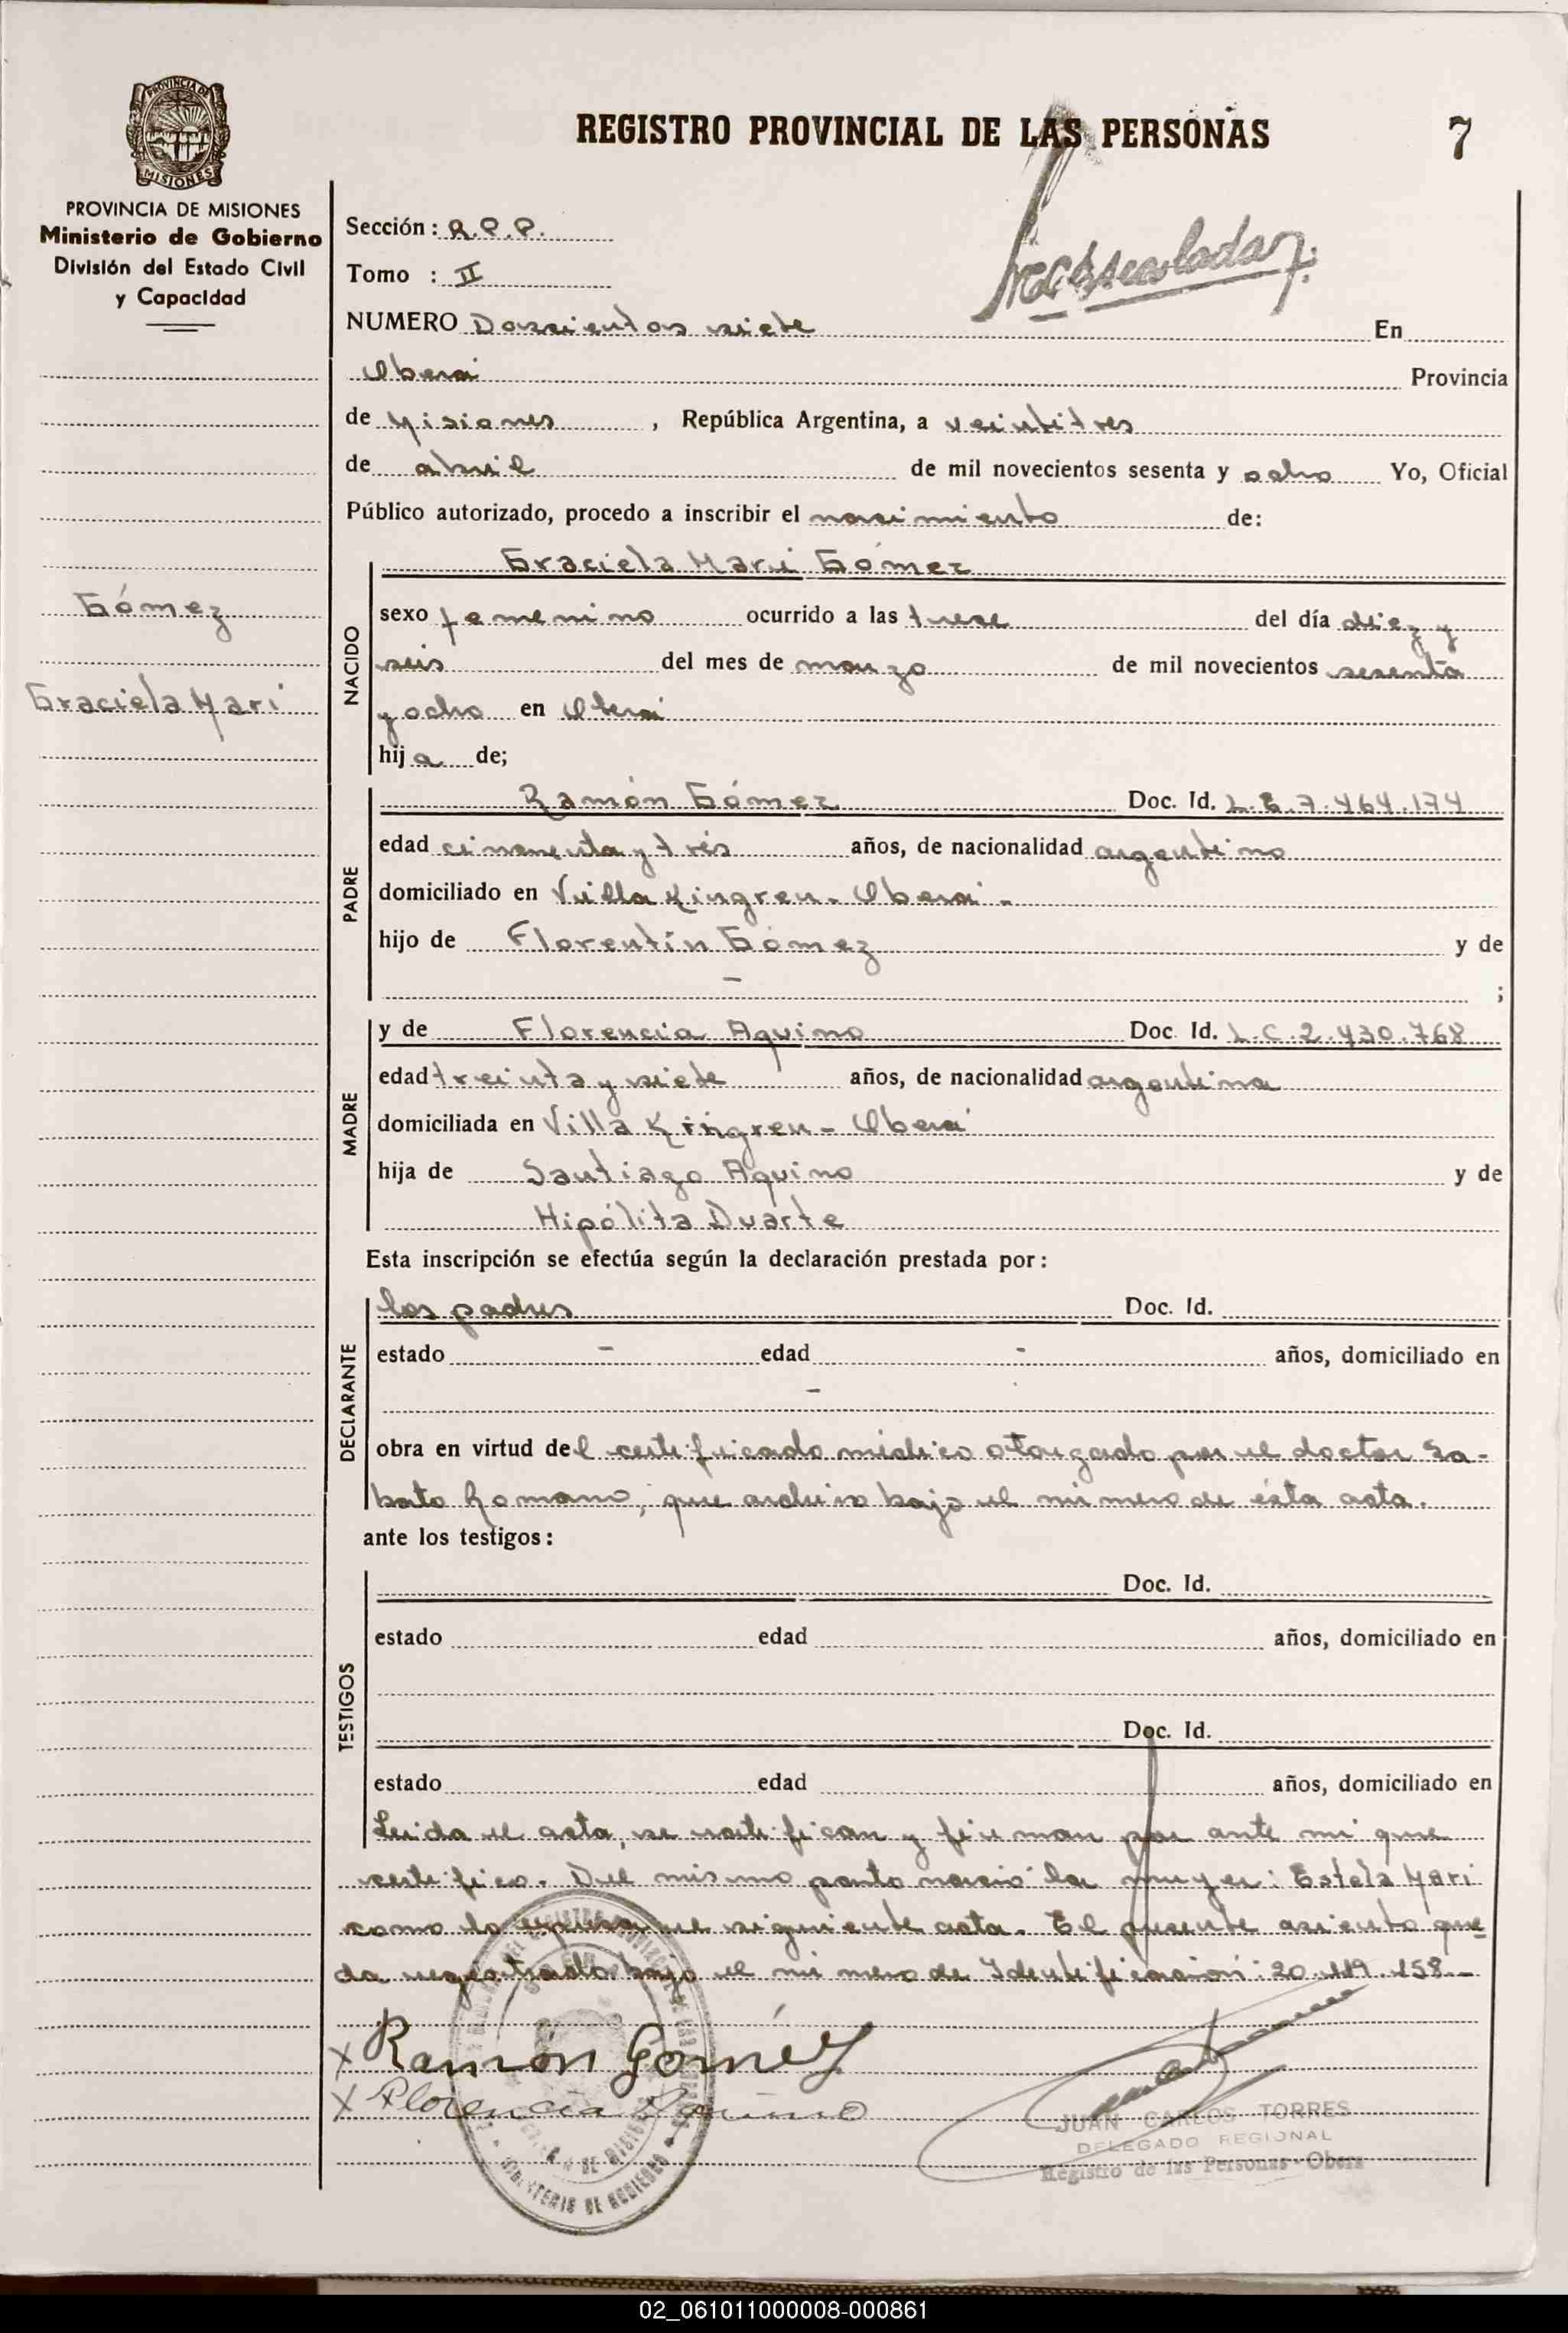 PROVINCIA DE
MISIONES
PROVINCIA DE MISIONES
Ministerio de Gobierno
División del Estado Civil
y Capacidad
REGISTRO PROVINCIAL DE LAS PERSONAS
7
Sección: R.P.P.
Tomo : II
NUMERO Doscientos siete En
Oberá Provincia
de Misiones, República Argentina, a veintitres
de abril de mil novecientos sesenta y ocho Yo, Oficial
Público autorizado, procedo a inscribir el nacimiento de:
Gómez
Graciela Mari
NACIDO
Graciela Mari Gómez
sexo femenino ocurrido a las trece del día diez y
seis del mes de marzo de mil novecientos sesenta
y ocho en Oberá
hija de;
PADRE
Ramón Gómez Doc. Id. L.E.7.464.174
edad cincuenta y trés años, de nacionalidad argentino
domiciliado en Villa Kingren - Oberá -
hijo de Florentín Gómez y de
- ;
MADRE
y de Florencia Aquino Doc. Id. L.C.2.430.768
edad treinta y siete años, de nacionalidad argentina
domiciliada en Villa Kringren - Oberá
hija de Santiago Aquino y de
Hipólita Duarte
Esta inscripción se efectúa según la declaración prestada por:
DECLARANTE
los padres Doc. Id.
estado - edad - años, domiciliado en
-
obra en virtud del certificado médico otorgado por el doctor Sa-
bato Romano, que archivo bajo el número de ésta acta.
ante los testigos:
TESTIGOS
Doc. Id.
estado edad años, domiciliado en
Doc. Id.
estado edad años, domiciliado en
Leida el acta, se ratifican y firman por ante mí que
certifico. Del mismo parto nació la mujer: Estela Mari
como lo expresa el siguiente acta. El presente asiento que-
da registrado bajo el número de Identificación: 20.119.158.-
x Ramón Goméz
x Florencia Aquino
JUAN CARLOS TORRES
DELEGADO REGIONAL
Registro de las Personas - Oberá
MINISTERIO DE GOBIERNO
02_061011000008-000861